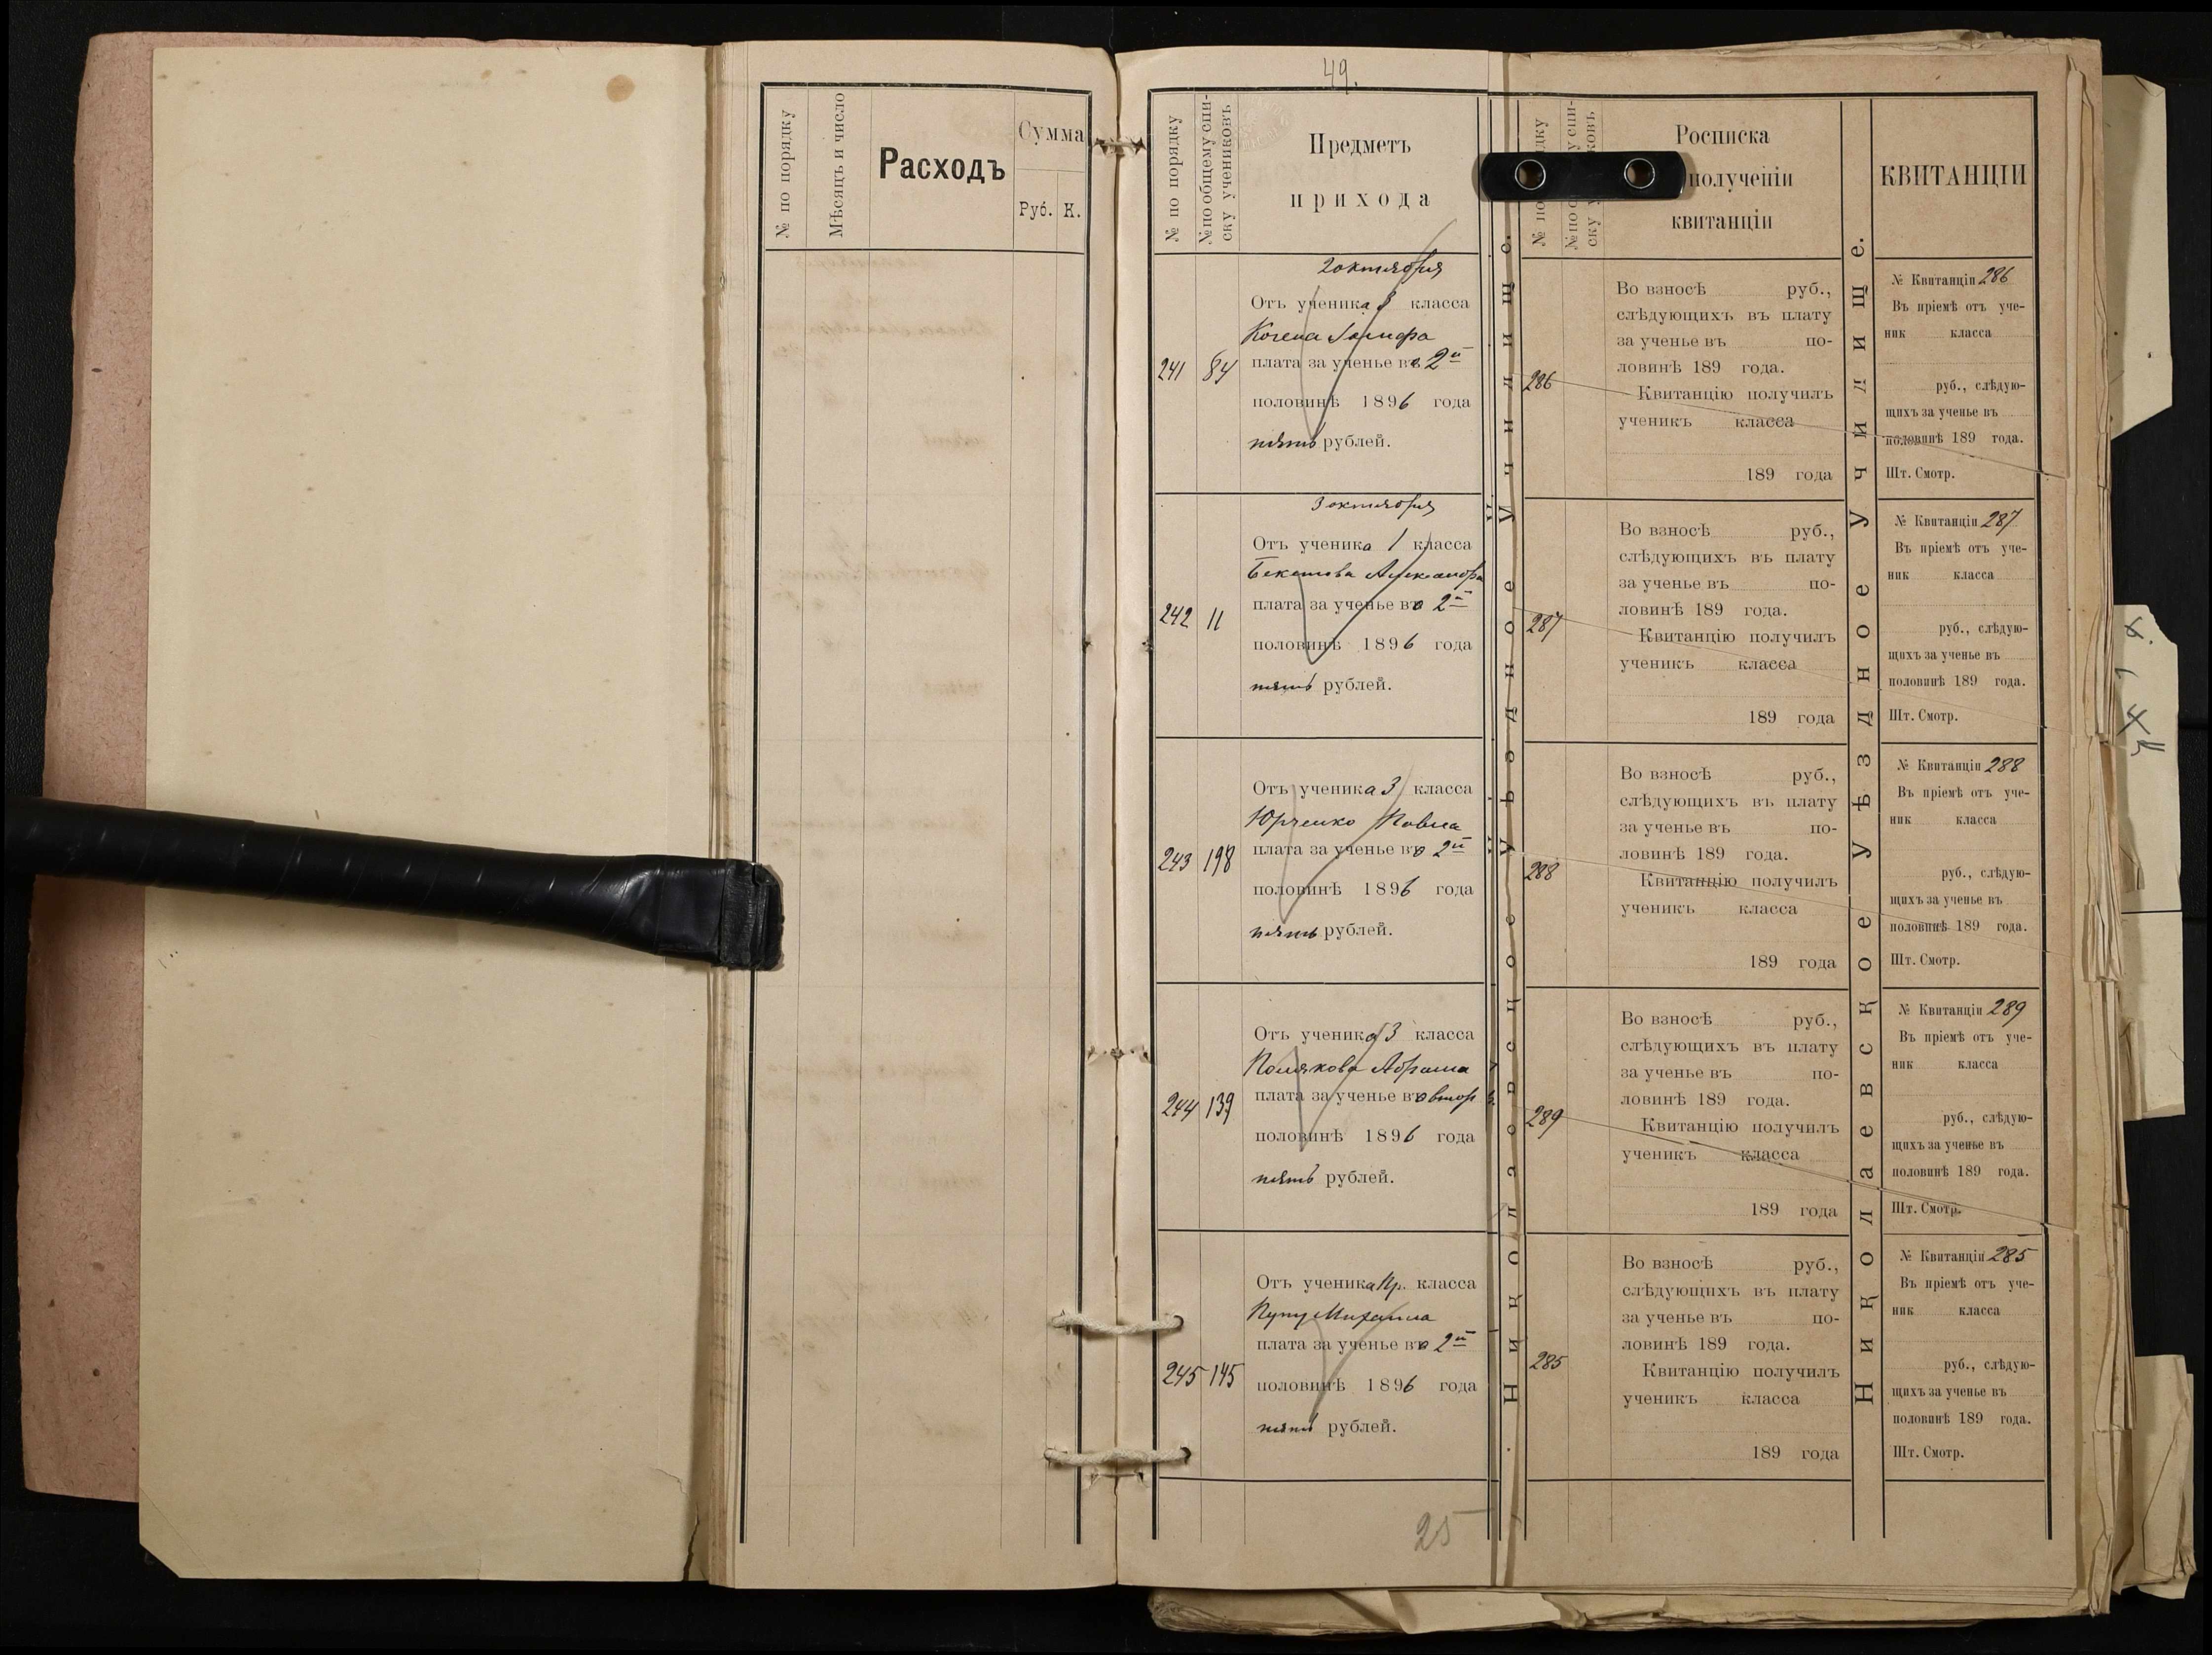 № по порядку
Мѣсяцъ и число
Расходъ
Сумма
Руб. К.
49.
№ по порядку
№ по общему спи-
ску учениковъ
Предметъ
прихода
2 октября
Отъ ученика 3 класса
Когена Іосифа
241 84 плата за ученье во 2й
половинѣ 1896 года
пять рублей.
3 октября
Отъ ученика 1 класса
Бекетова Александра
242 11 плата за ученье во 2й
половинѣ 1896 года
пять рублей.
Отъ ученика 3 класса
Юрченко Павла
243 198 плата за ученье во 2й
половинѣ 1896 года
пять рублей.
Отъ ученика 3 класса
Полякова Абрама
244 139 плата за ученье во втор
половинѣ 1896 года
пять рублей.
Отъ ученика Пр. класса
Пупу Михаила
245 145 плата за ученье во 2й
половинѣ 1896 года
пять рублей.
25
Николаевское Уѣздное Училище.
Росписка
полученіи
квитанціи
Во взносѣ руб.,
слѣдующихъ въ плату
за ученье въ по-
ловинѣ 189 года.
286
Квитанцію получилъ
ученикъ класса
189 года
Во взносѣ руб.,
слѣдующихъ въ плату
за ученье въ по-
ловинѣ 189 года.
287
Квитанцію получилъ
ученикъ класса
189 года
Во взносѣ руб.,
слѣдующихъ въ плату
за ученье въ по-
ловинѣ 189 года.
288
Квитанцію получилъ
ученикъ класса
189 года
Во взносѣ руб.,
слѣдующихъ въ плату
за ученье въ по-
ловинѣ 189 года.
289
Квитанцію получилъ
ученикъ класса
189 года
Во взносѣ руб.,
слѣдующихъ въ плату
за ученье въ по-
ловинѣ 189 года.
285
Квитанцію получилъ
ученикъ класса
189 года
Николаевское Уѣздное Училище.
КВИТАНЦІИ
№ Квитанціи 286
Въ пріемѣ отъ уче-
ник класса
руб., слѣдую-
щихъ за ученье въ
половинѣ 189 года.
Шт. Смотр.
№ Квитанціи 287
Въ пріемѣ отъ уче-
ник класса
руб., слѣдую-
щихъ за ученье въ
половинѣ 189 года.
Шт. Смотр.
№ Квитанціи 288
Въ пріемѣ отъ уче-
ник класса
руб., слѣдую-
щихъ за ученье въ
половинѣ 189 года.
Шт. Смотр.
№ Квитанціи 289
Въ пріемѣ отъ уче-
ник класса
руб., слѣдую-
щихъ за ученье въ
половинѣ 189 года.
Шт. Смотр.
№ Квитанціи 285
Въ пріемѣ отъ уче-
ник класса
руб., слѣдую-
щихъ за ученье въ
половинѣ 189 года.
Шт. Смотр.